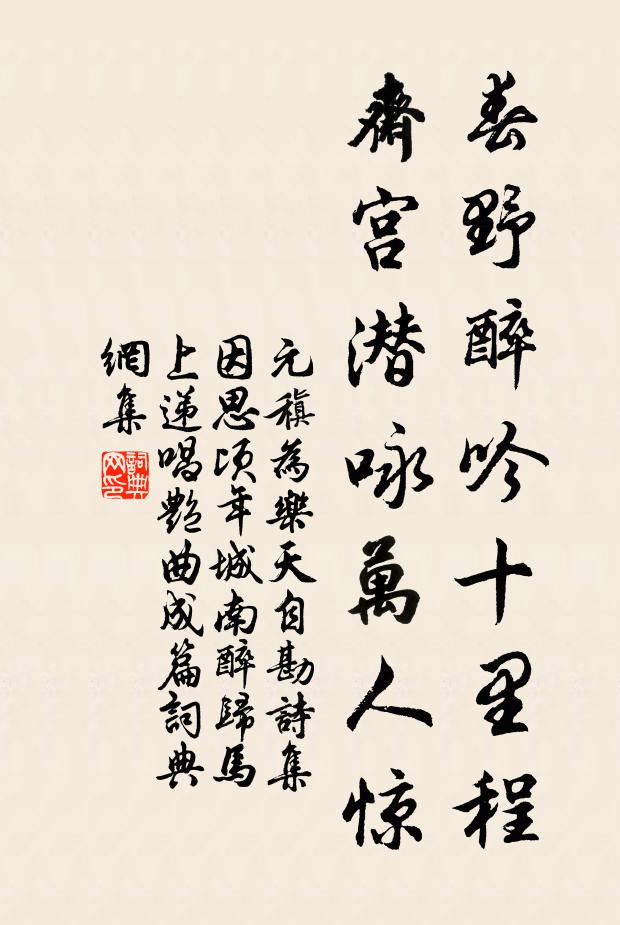 春野醉吟十里程
齋宫潜咏萬人惊
元稹為樂天自勘詩集
因思頃年城南醉歸馬
上递唱艶曲成篇詞典
網集
詞典網印